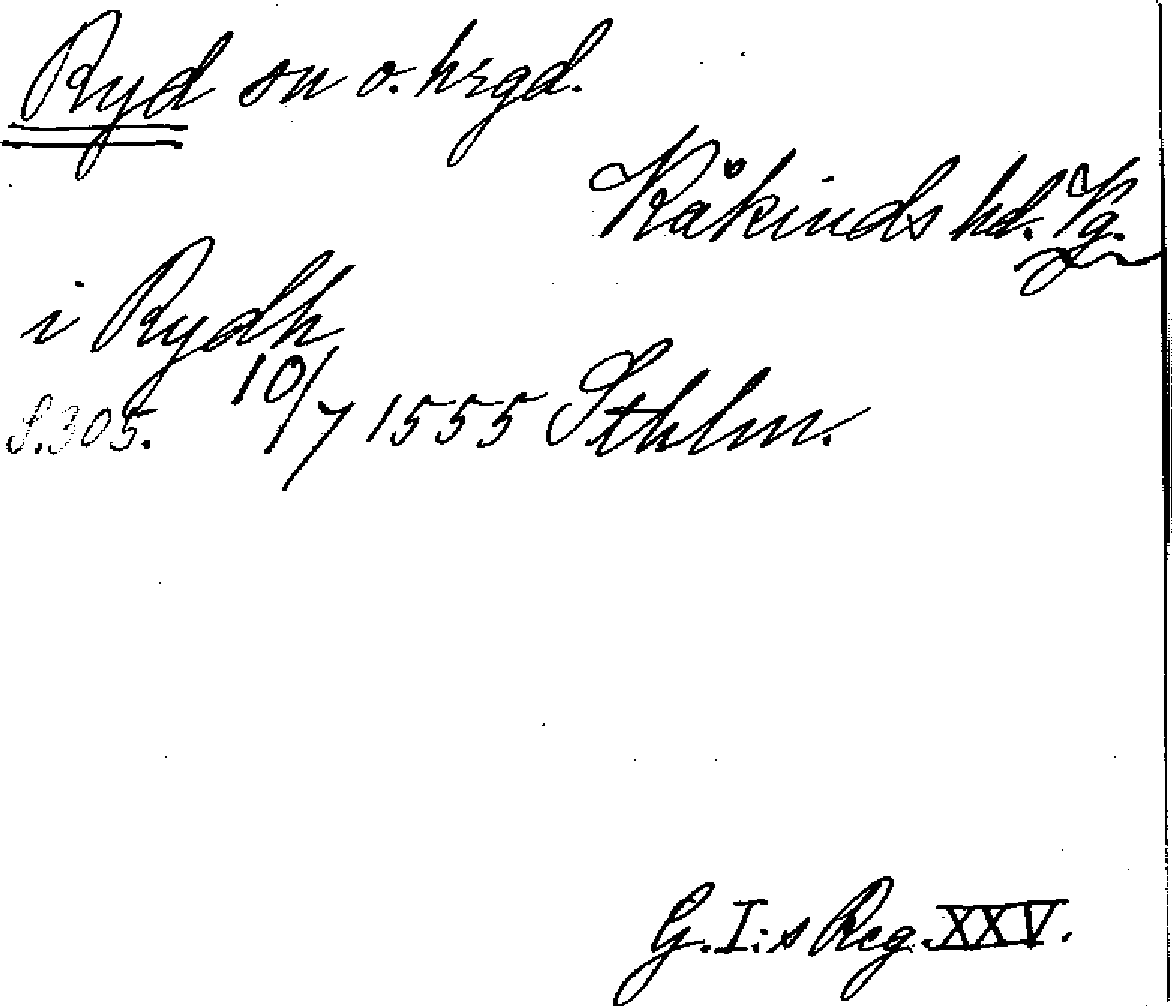 Ryd sn o. hrgd.
Kåkinds hd. Vg.
i Rydh
S.305. 10/7 1555 Sthlm.
G.I:s Reg. XXV.